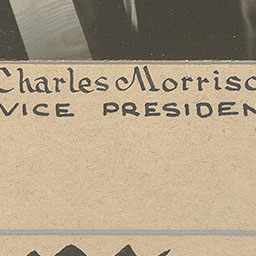 Charles Morriso
VICE PRESIDEN